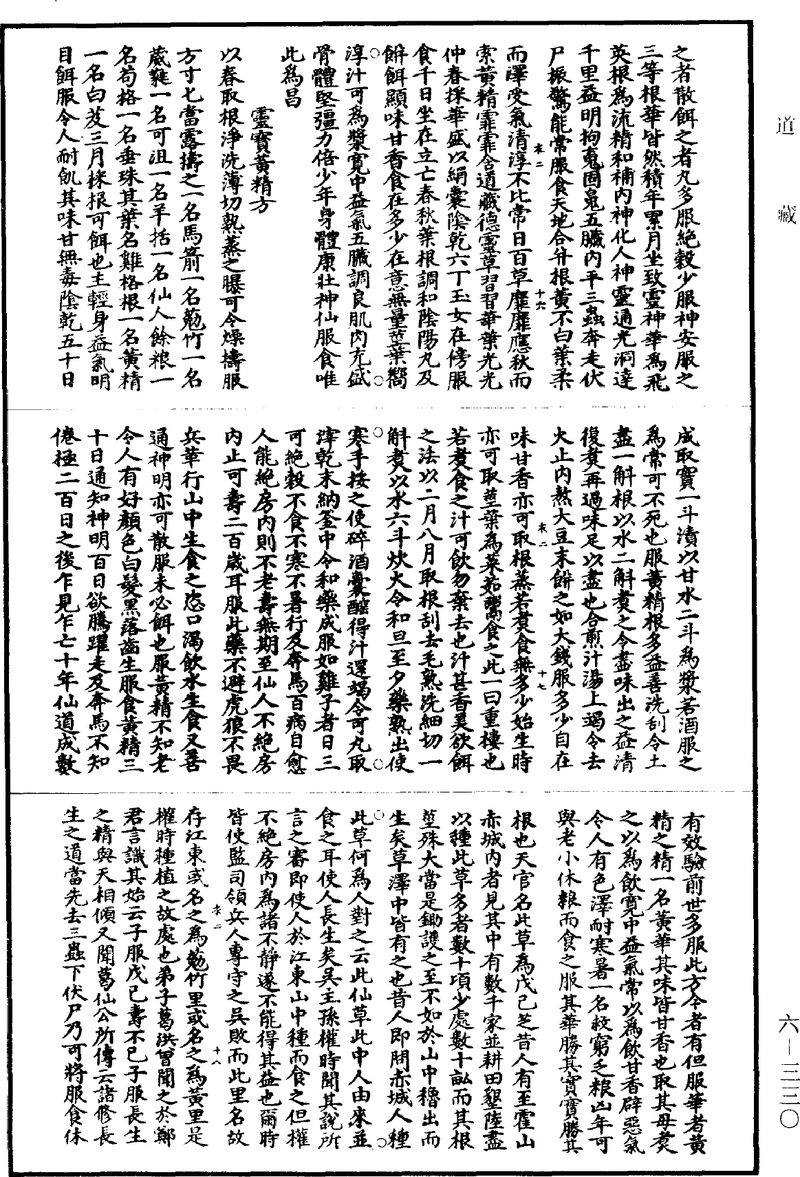 之者散餌之者丸多服絶穀少服神安服之
三等根華皆然積年累月坐致靈神華為飛
英根為流精和補內神化人神靈通光洞達
千里益明拘䰟固魄五臟內平三蟲奔走伏
尸振驚能常服食天地合并根黃不白葉柔
而澤受氣清淳不比常日百草靡靡應秋而
索黃精霏霏含道藏德靈草習習華葉光光
仲春採華盛以絹囊陰乾六丁玉女在傍服
食千日坐在立亡春秋葉根調和陰陽丸及
餅餌顯味甘香食在多少在意無量莖葉蒭
淳汁可為漿寬中益氣五臟調良肌肉充盛
骨體堅彊力倍少年身體康壯神仙服食唯
此為昌
靈寶黃精方
以春取根淨洗薄切熟蒸之曝可令燥擣服
方寸匕當露擣之一名馬箭一名菟竹一名
葳蕤一名可沮一名羊括一名仙人餘粮一
名苟格一名垂珠其葉名雞格根一名黃精
一名白芨三月採根可餌也主輕身益氣明
目餌服令人耐飢其味甘無毒陰乾五十日
成取實一斗漬以甘水二斗為漿若酒服之
為常可不死也服黃精根多益善洗刮令土
盡一斛根以水二斛煑之令盡味出之益清
復煑再過味足以盡也合煎汁湯上竭令去
火止內熬大豆末餅之如大錢服多少自在
味甘香亦可取根蒸若煑食無多少始生時
亦可取莖葉為菜茹鬻食之此一曰重樓也
若煑食之汁可飲勿棄去也汁甚香美欲餌
之法以二月八月取根刮去毛熟洗細切一
斛煑以水六斗炊火令和旦至夕藥熟出使
寒手挼之使碎酒囊醡得汁還竭令可丸取
滓乾末納釜中令和藥成服如雞子者日三
可絶穀不食不寒不暑行及奔馬百病自愈
人能絶房內則不老壽無期至仙人不絶房
內止可壽二百歲耳服此藥不避虎狼不畏
兵華行山中生食之恣口渴飲水生食又善
通神明亦可散服未必餌也服黃精不知老
令人有好顏色白髮黑落齒生服食黃精三
十日通知神明百日欲騰躍走及奔馬不知
倦極二百日之後乍見乍亡十年仙道成數
有效驗前世多服此方今者有但服華者黃
精之精一名黃華其味皆甘香也取其母煑
之以為飲寬中益氣常以為飲甘香辟惡氣
令人有色澤耐寒暑一名救窮乏粮凶年可
與老小休粮而食之服其華勝其實實勝其
根也天官名此草為戊己芝昔人有至霍山
赤城內者見其中有數千家並耕田墾陸盡
以種此草多者數十頃少處數十畝而其根
莖殊大當是鋤護之至不如於山中穭出而
生矣草澤中皆有之也昔人即問赤城人種
此草何為人對之云此仙草此中人由來並
食之耳使人長生矣吳主孫權時聞其說所
言之審即使人於江東山中種而食之但權
不絶房內為諸不靜遂不能得其益也爾時
皆使監司領兵人專守之吳敗而此里名故
存江東或名之為菟竹里或名之為黃里是
權時種植之故處也弟子葛洪曽聞之於鄭
君言識其始云子服戊己壽不已子服長生
之精與天相傾又聞葛仙公所傳云諸修長
生之道當先去三蟲下伏尸乃可將服食休
衣二
十六
衣二
十七
衣二
十八
道藏
六—三三〇